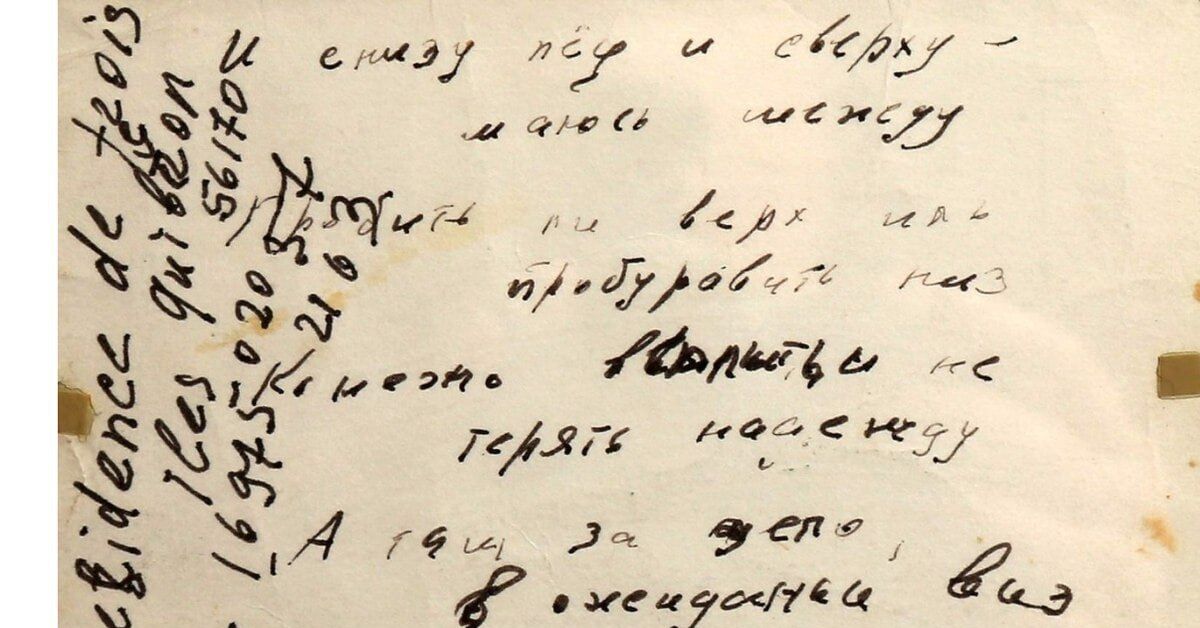 И снизу лёд и сверху –
маюсь между
Пробить ли верх иль
пробуравить низ
Конечно всплыть и не
терять надежду
А там за дело,
в ожиданьи виз
Résidence de
Quiberon
56170
Iles